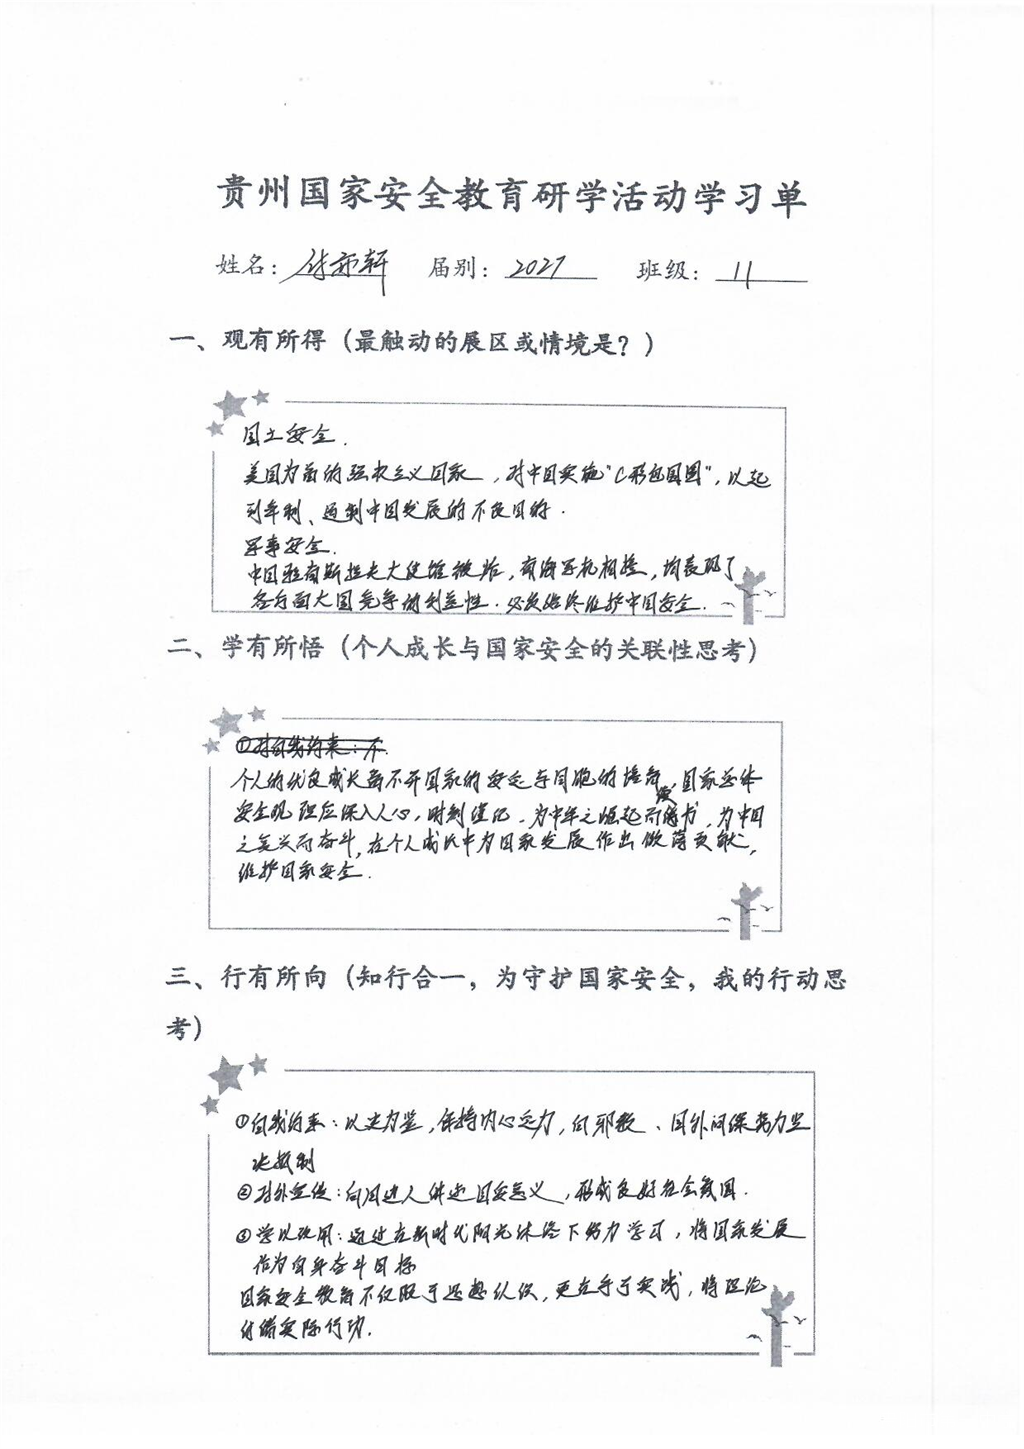 贵州国家安全教育研学活动学习单
姓名：付亦轩 届别：2027 班级：11
一、观有所得（最触动的展区或情境是？）
国土安全.
美国为首的强权主义国家，对中国实施“C形包围圈”，以起
到牵制、遏制中国发展的不良目的.
军事安全.
中国驻南斯拉夫大使馆被炸，南海军机相撞，均表现了
各方面大国竞争的利益性.必须始终维护中国安全.
二、学有所悟（个人成长与国家安全的关联性思考）
①对自我约束：不
个人的优良成长离不开国家的安定与同胞的培育，国家总体
安全观理应深入人心，时刻谨记，为中华之崛起而读书，为中国
之复兴而奋斗，在个人成长中为国家发展作出微薄贡献，
维护国家安全.
三、行有所向（知行合一，为守护国家安全，我的行动思
考）
①自我约束：以史为鉴，保持内心定力，向邪教、国外间谍势力坚
决抵制
②对外宣传：向周边人讲述国安意义，形成良好社会氛围.
③学以致用：通过在新时代阳光沐浴下努力学习，将国家发展
作为自身奋斗目标
国家安全教育不仅限于思想认识，更在乎于实践，将理论
付诸实际行动.